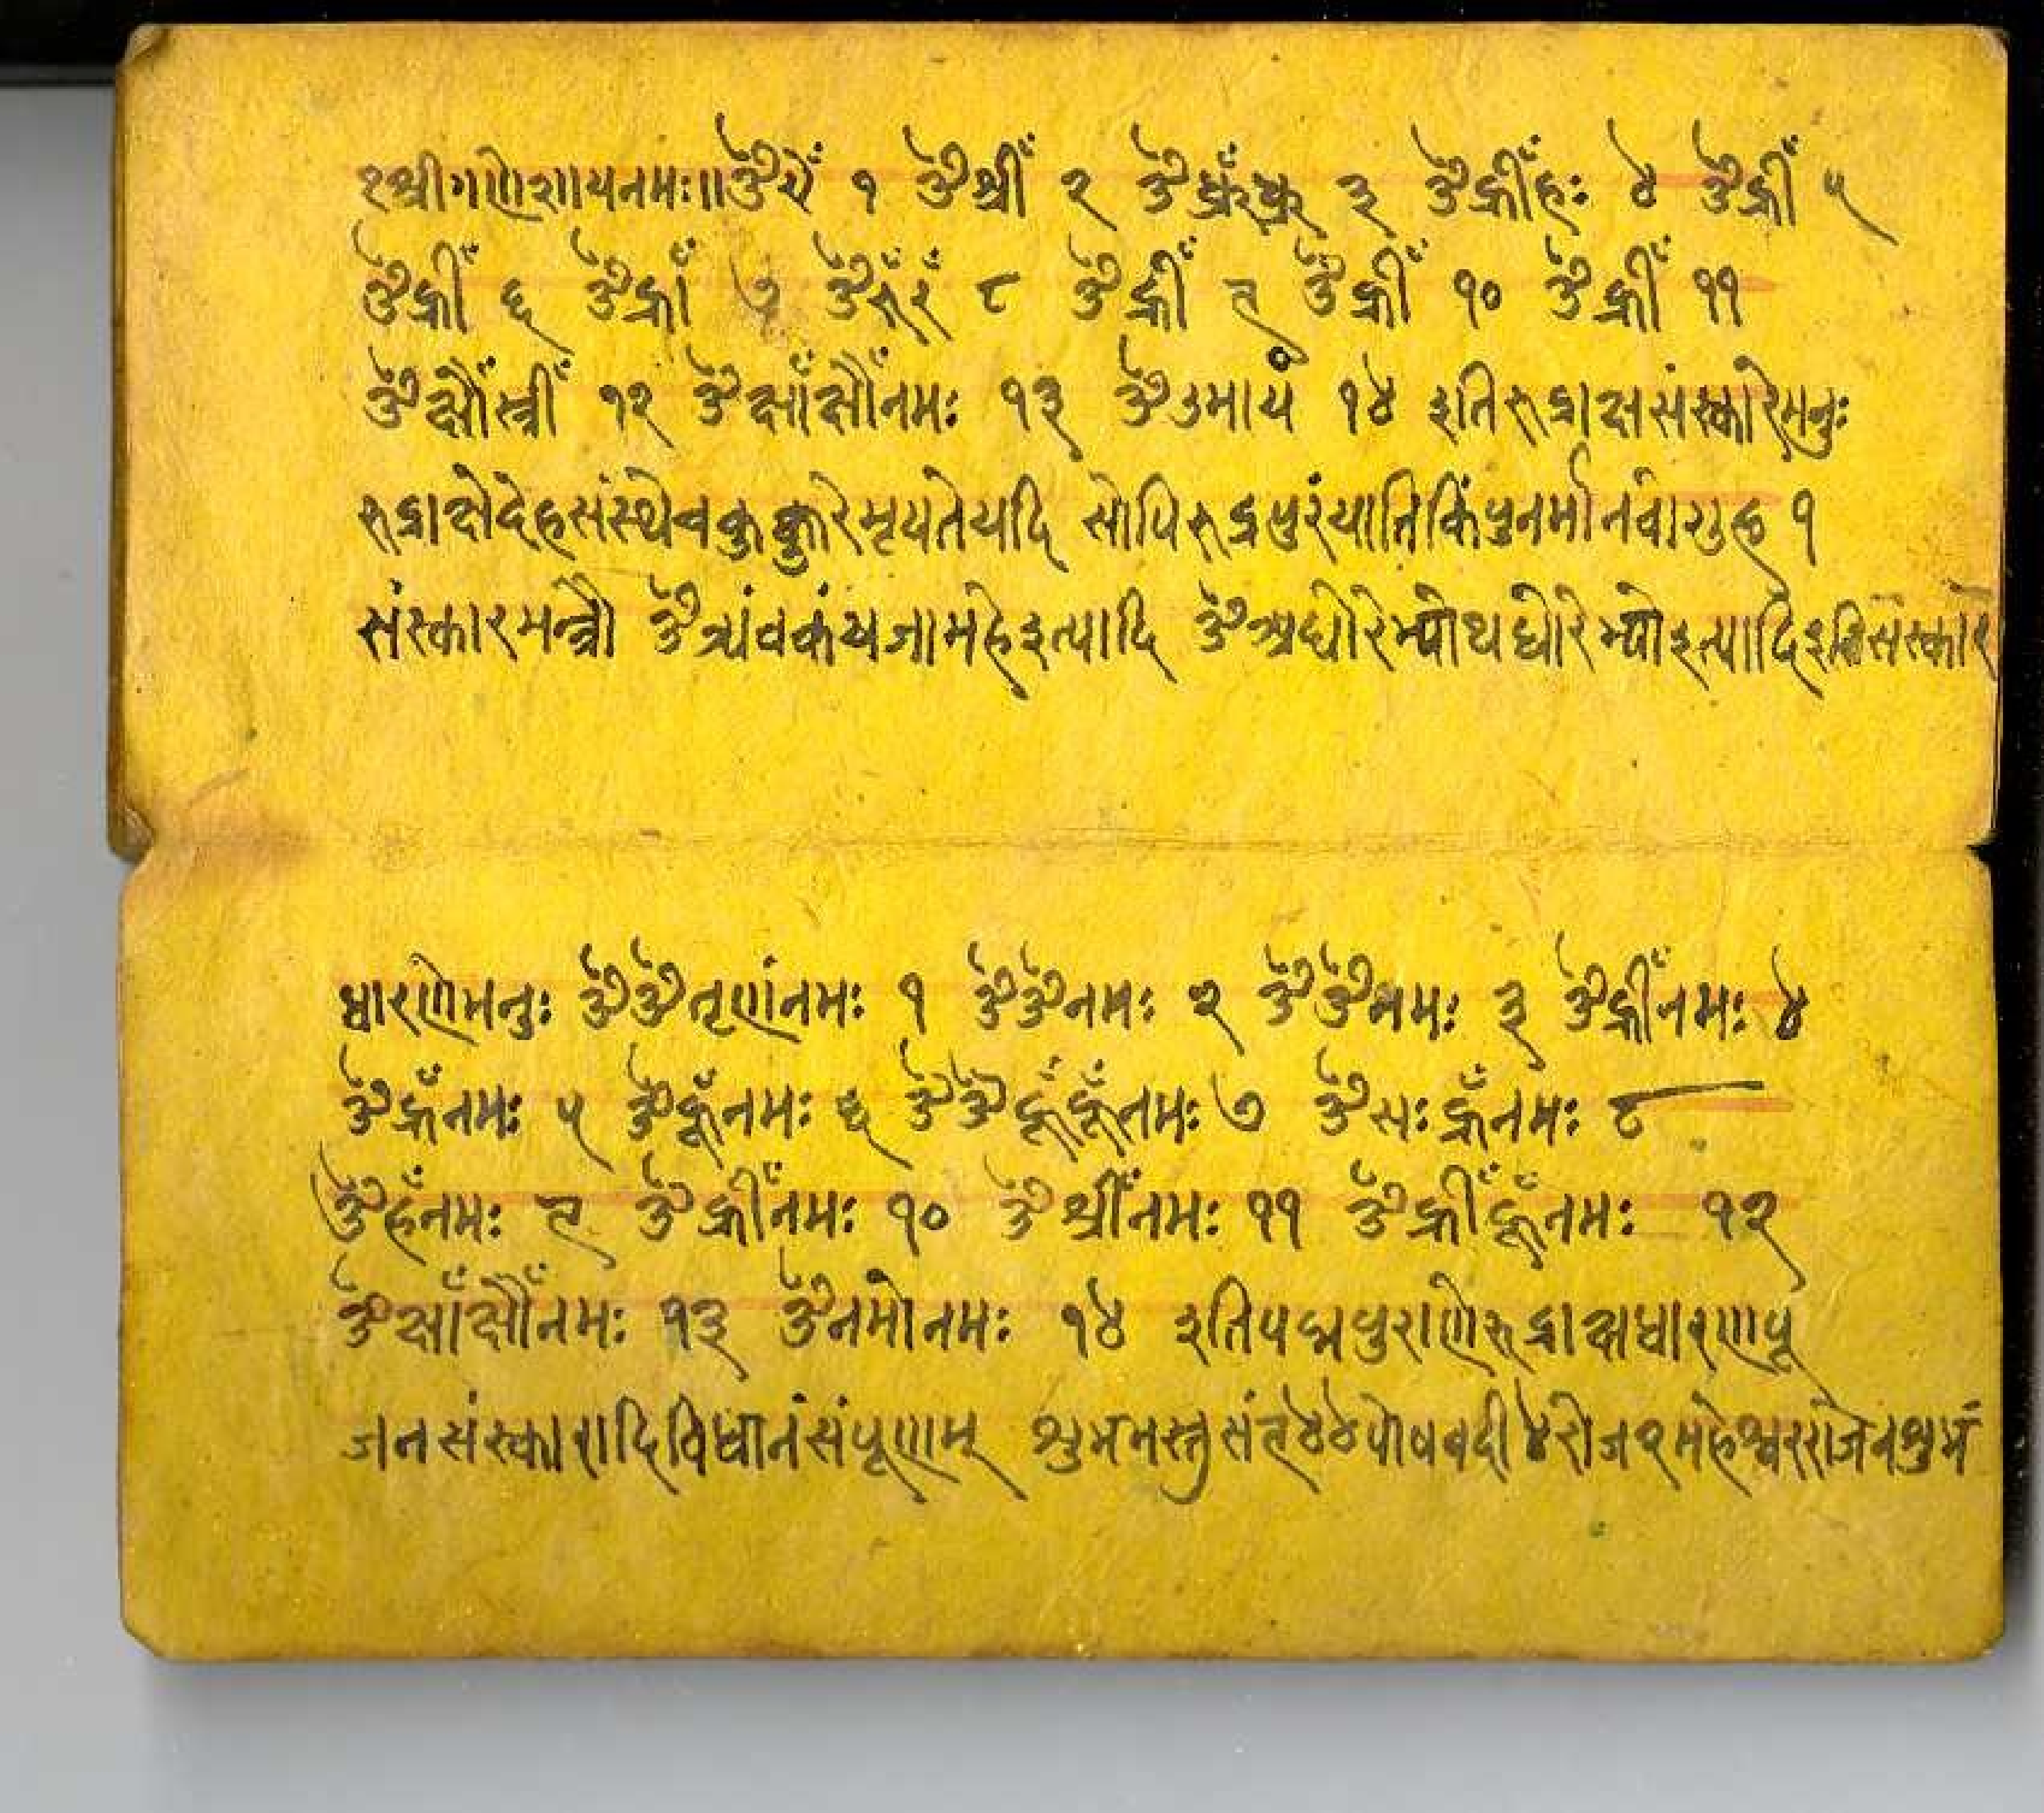 १श्रीगणेशायनमः॥ॐऐँ १ ॐश्रीँ २ ॐध्रुँध्रु ३ ॐह्रीँहः ४ ॐह्रीँ ५
ॐह्रीँ ६ ॐह्राँ ७ ॐरुँरँ ८ ॐह्रीँ ९ ॐह्रीँ १० ॐह्रीँ ११
ॐक्षौँस्त्रीँ १२ ॐक्षाँक्षौँनमः १३ ॐउमायं १४ इतिरुद्राक्षसंस्कारेमनुः
रुद्राक्षेदेहसंस्थेवकुक्कुरेमृयतेयदि सोपिरुद्रपुरंयातिकिंपुनर्मानवागुह १
संस्कारमन्त्रौ ॐत्र्यंवकंयजामहेइत्यादि ॐअघोरेभ्योथघोरेभ्योइत्यादिइतिसंस्कार
धारणेमनुः ॐॐतृणंनमः १ ॐॐनमः २ ॐॐनमः ३ ॐह्रीँनमः ४
ॐह्रूँनमः ५ ॐहूँनमः ६ ॐॐहूँहूँनमः ७ ॐसःह्रूँनमः ८
ॐहँनमः ९ ॐह्रीँनमः १० ॐश्रीँनमः ११ ॐह्रीँहूँनमः १२
ॐक्षाँक्षौँनमः १३ ॐनमोनमः १४ इतिपद्मपुराणेरुद्राक्षधारणपू
जनसंस्कारादिविधानंसंपूर्णाम् शुभमस्तुसं९४४पोषवदी४रोज१महेश्वरराजेनशुभं